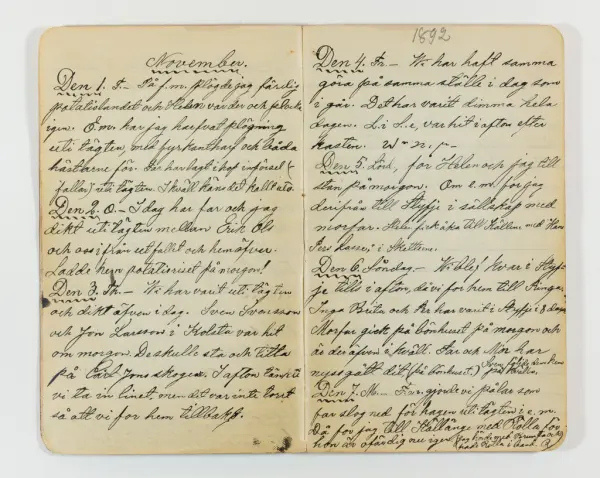 November.
Den 1. T.- På f.m. plögde jag färdig
potatislandet och Helin vänder och
igen. E.m. har jag harfvat plögning
uti tägten, med fyrkantharf och båda
hästarne för. Far har lagt ihop införsel (
fallor) uti tägten. I kväll kändes kallt ute.
Den 2. O.- I dag har far och jag
dikt uti tägten mellan Erik Ols
och oss ifrån ett fallt och hemöfver.
Ladde hem potatisriset på morgon!
Den 3. Th.- Vi har varit uti tägten
och dikt äfven i dag. Sven Svarsson
och Jon Larsson i var hit
om morgon. De skulle stå och titta
på Carl Jons skogen. I afton tänkte
vi ta in linet, men det var inte torrt
så att vi for hem tillbaks.
1892
Den 4. Fr.- Vi har haft samma
göra på samma ställe i dag som
i går. Det har varit dimma hela
dagen. L. i S. e, var hit i afton efter
kasten.
Den 5. Lörd, för Helen och jag till
stan på morgon. Om e.m. for jag
derifrån till Styfje i sällskap med
morfar. Helin fick åka till Källene med Hans
Pers i Skettene.
Den 6. Söndag.- Vi blef kvar i Styf-
je tills i afton, då vi for hem till Ringa.
Inga Brita och Per har varit i Styfje i 8 dagar
Morfar gick på bönhuset på morgon och
är der äfven i kväll. Far och Mor har
nyss gått dit (på bönhuset.)
Den 7. M.- F.m. gjorde vi pålar som
far slog ned för hagen uti tägten i e.m.
Då for jag till Hallänge med Rolla för
hon är ofärdig nu igen